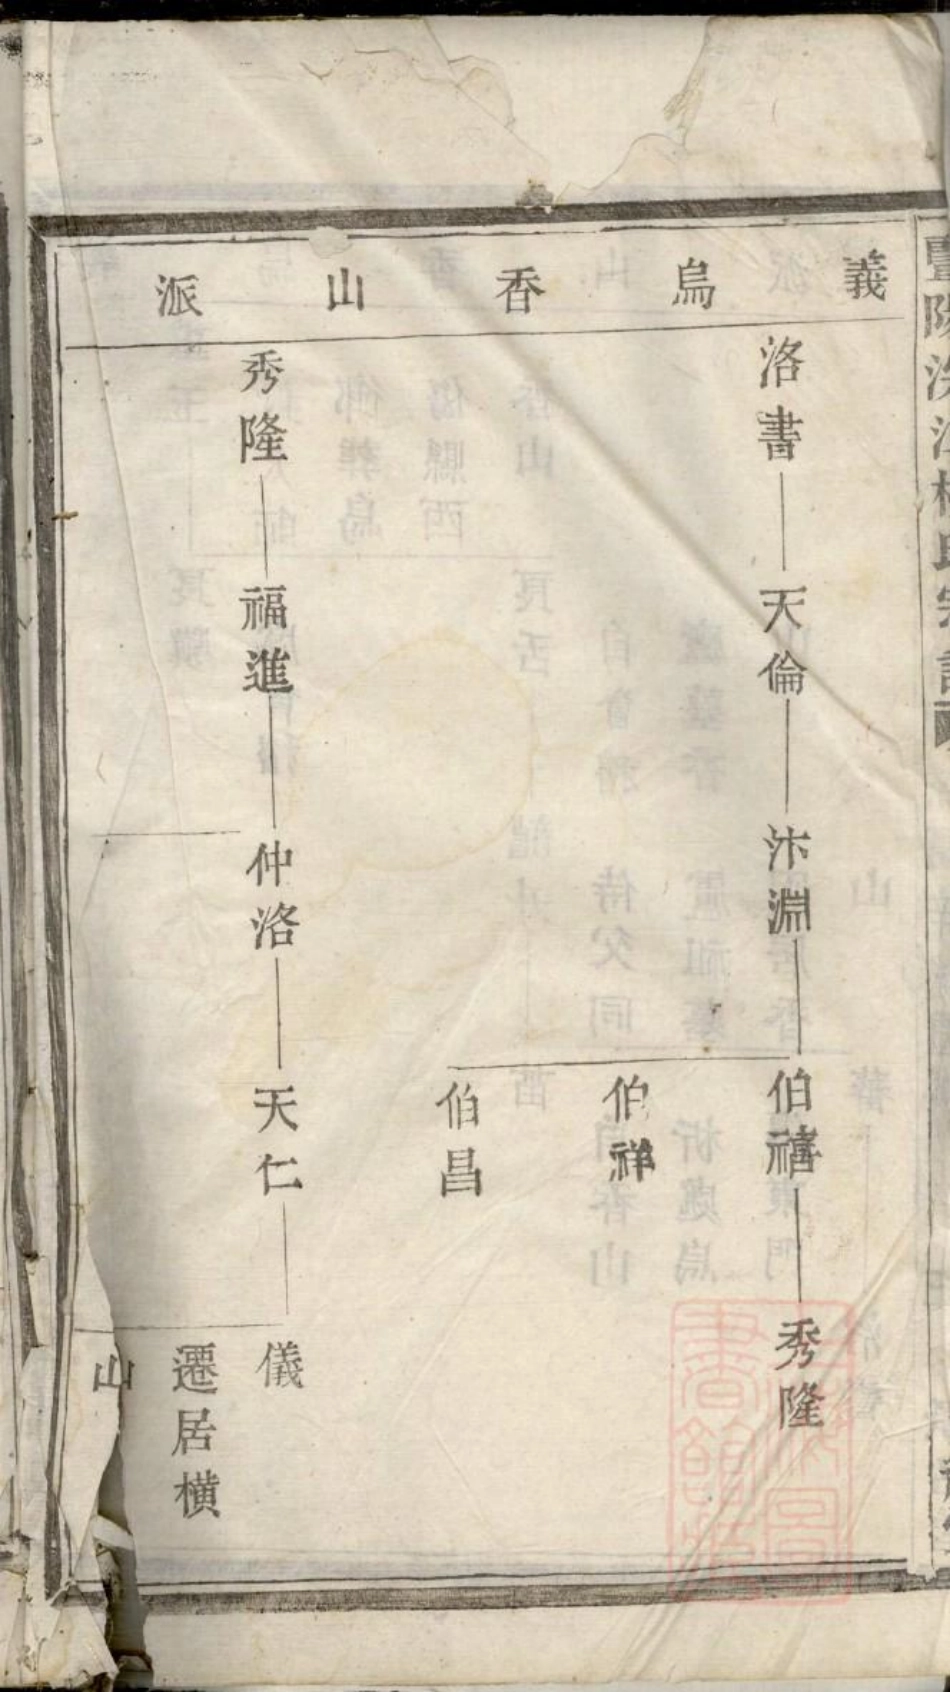 義烏香山派
洛書
天倫
汴淵
伯禧
秀隆
伯祥
伯昌
秀隆
福進
仲洛
天仁
儀
遷居橫
山